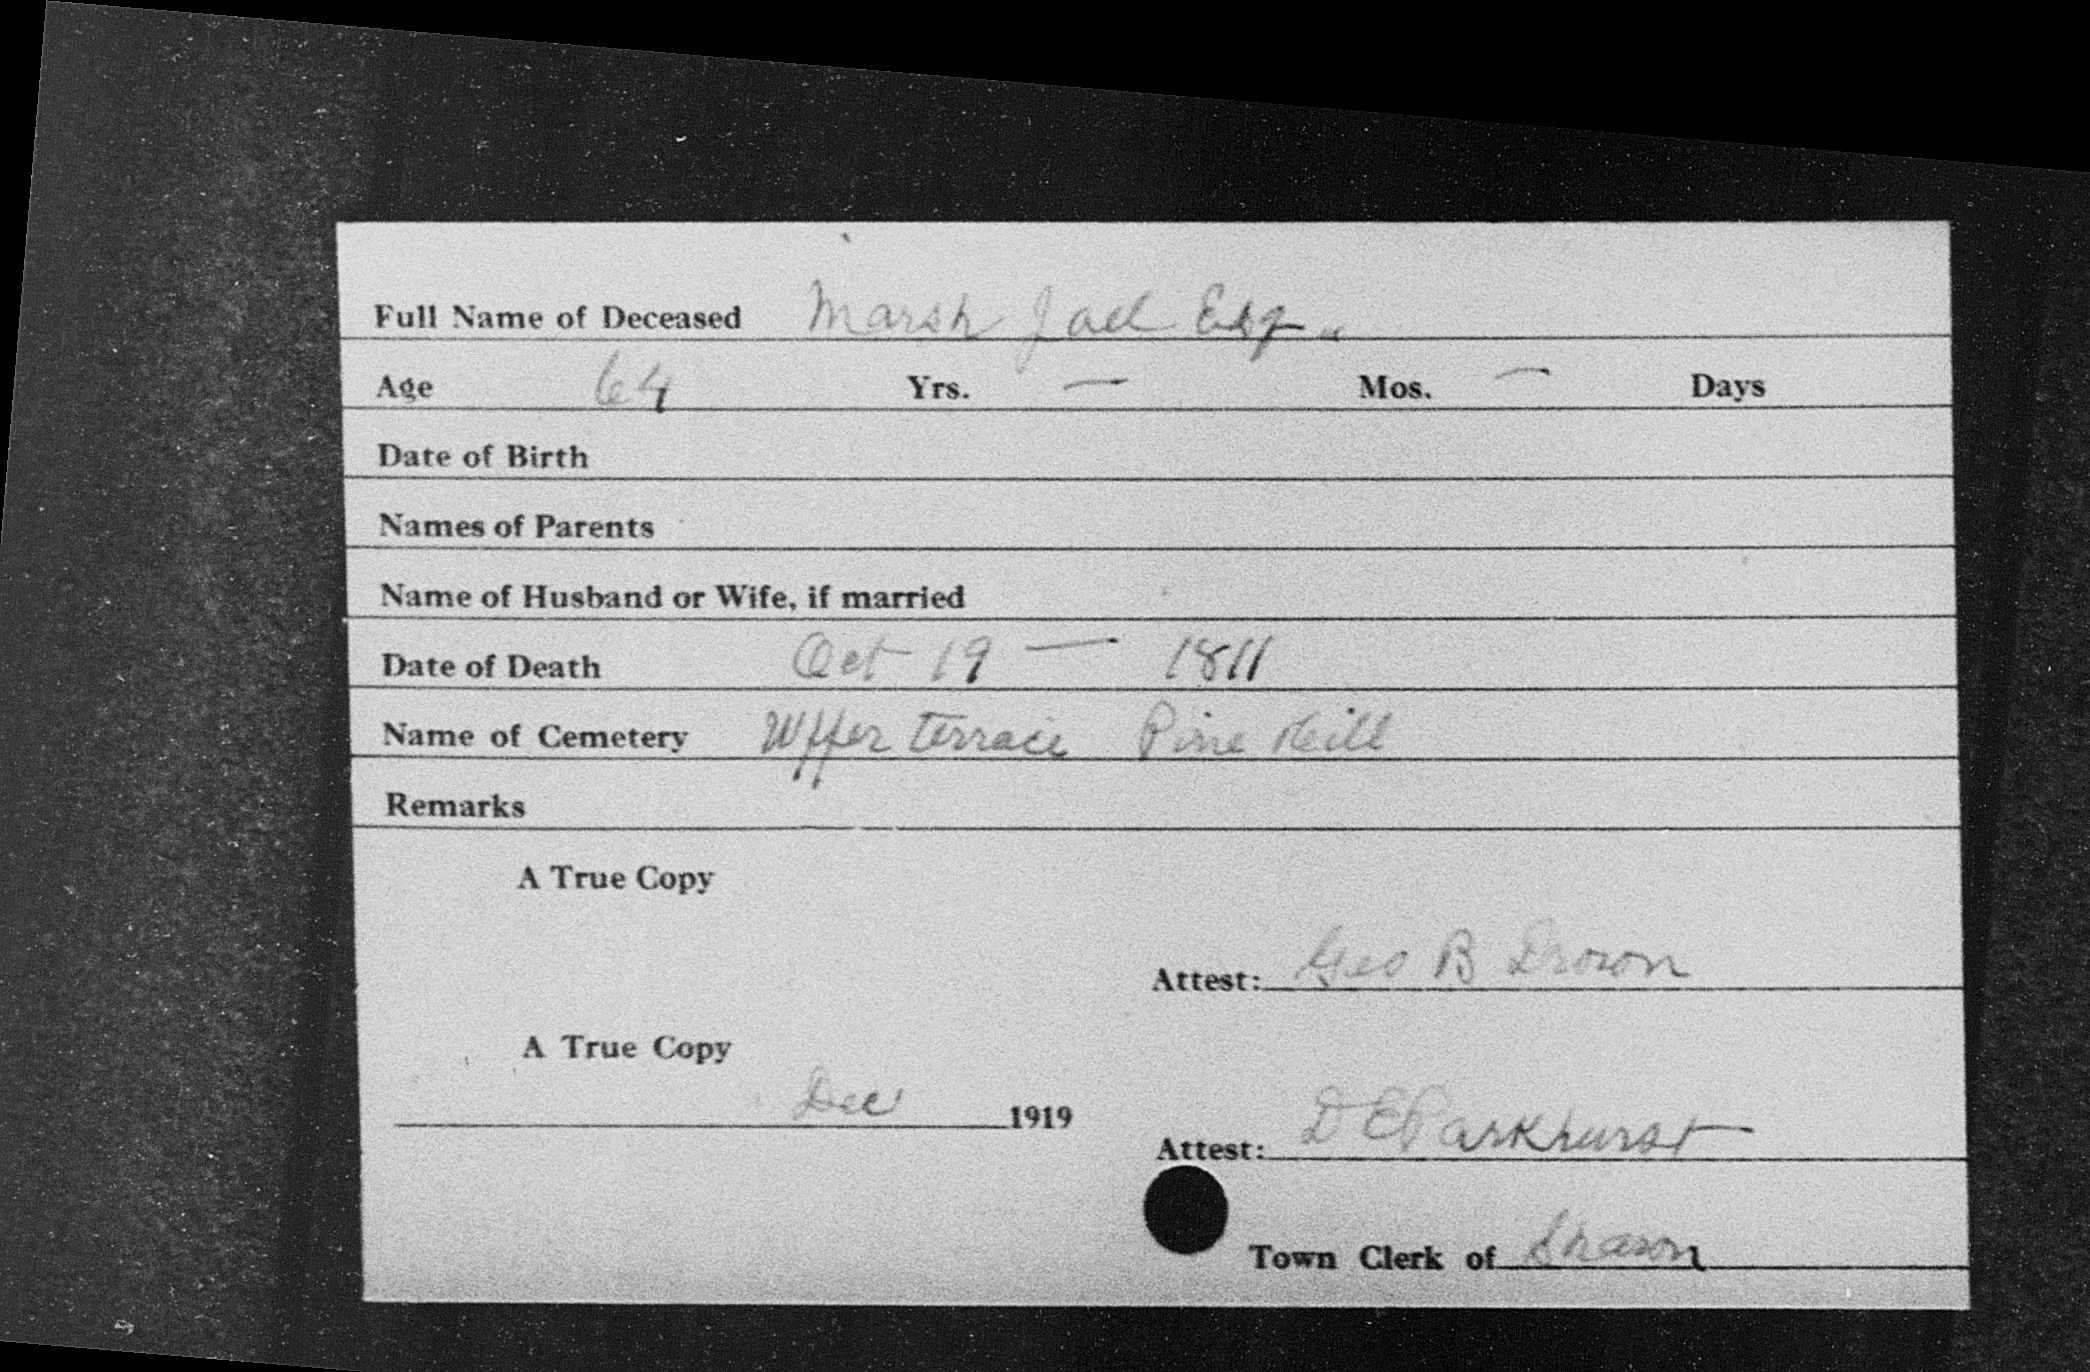 Full Name of Deceased Marsh Joel Esq.
Age 64 Yrs. — Mos. — Days
Date of Birth
Names of Parents
Name of Husband or Wife, if married
Date of Death Oct 19 — 1811
Name of Cemetery Upper terrace Pine Hill
Remarks
A True Copy
Attest: Geo B Drown
A True Copy
Dec 1919
Attest: D E Parkhurst
Town Clerk of Sharon